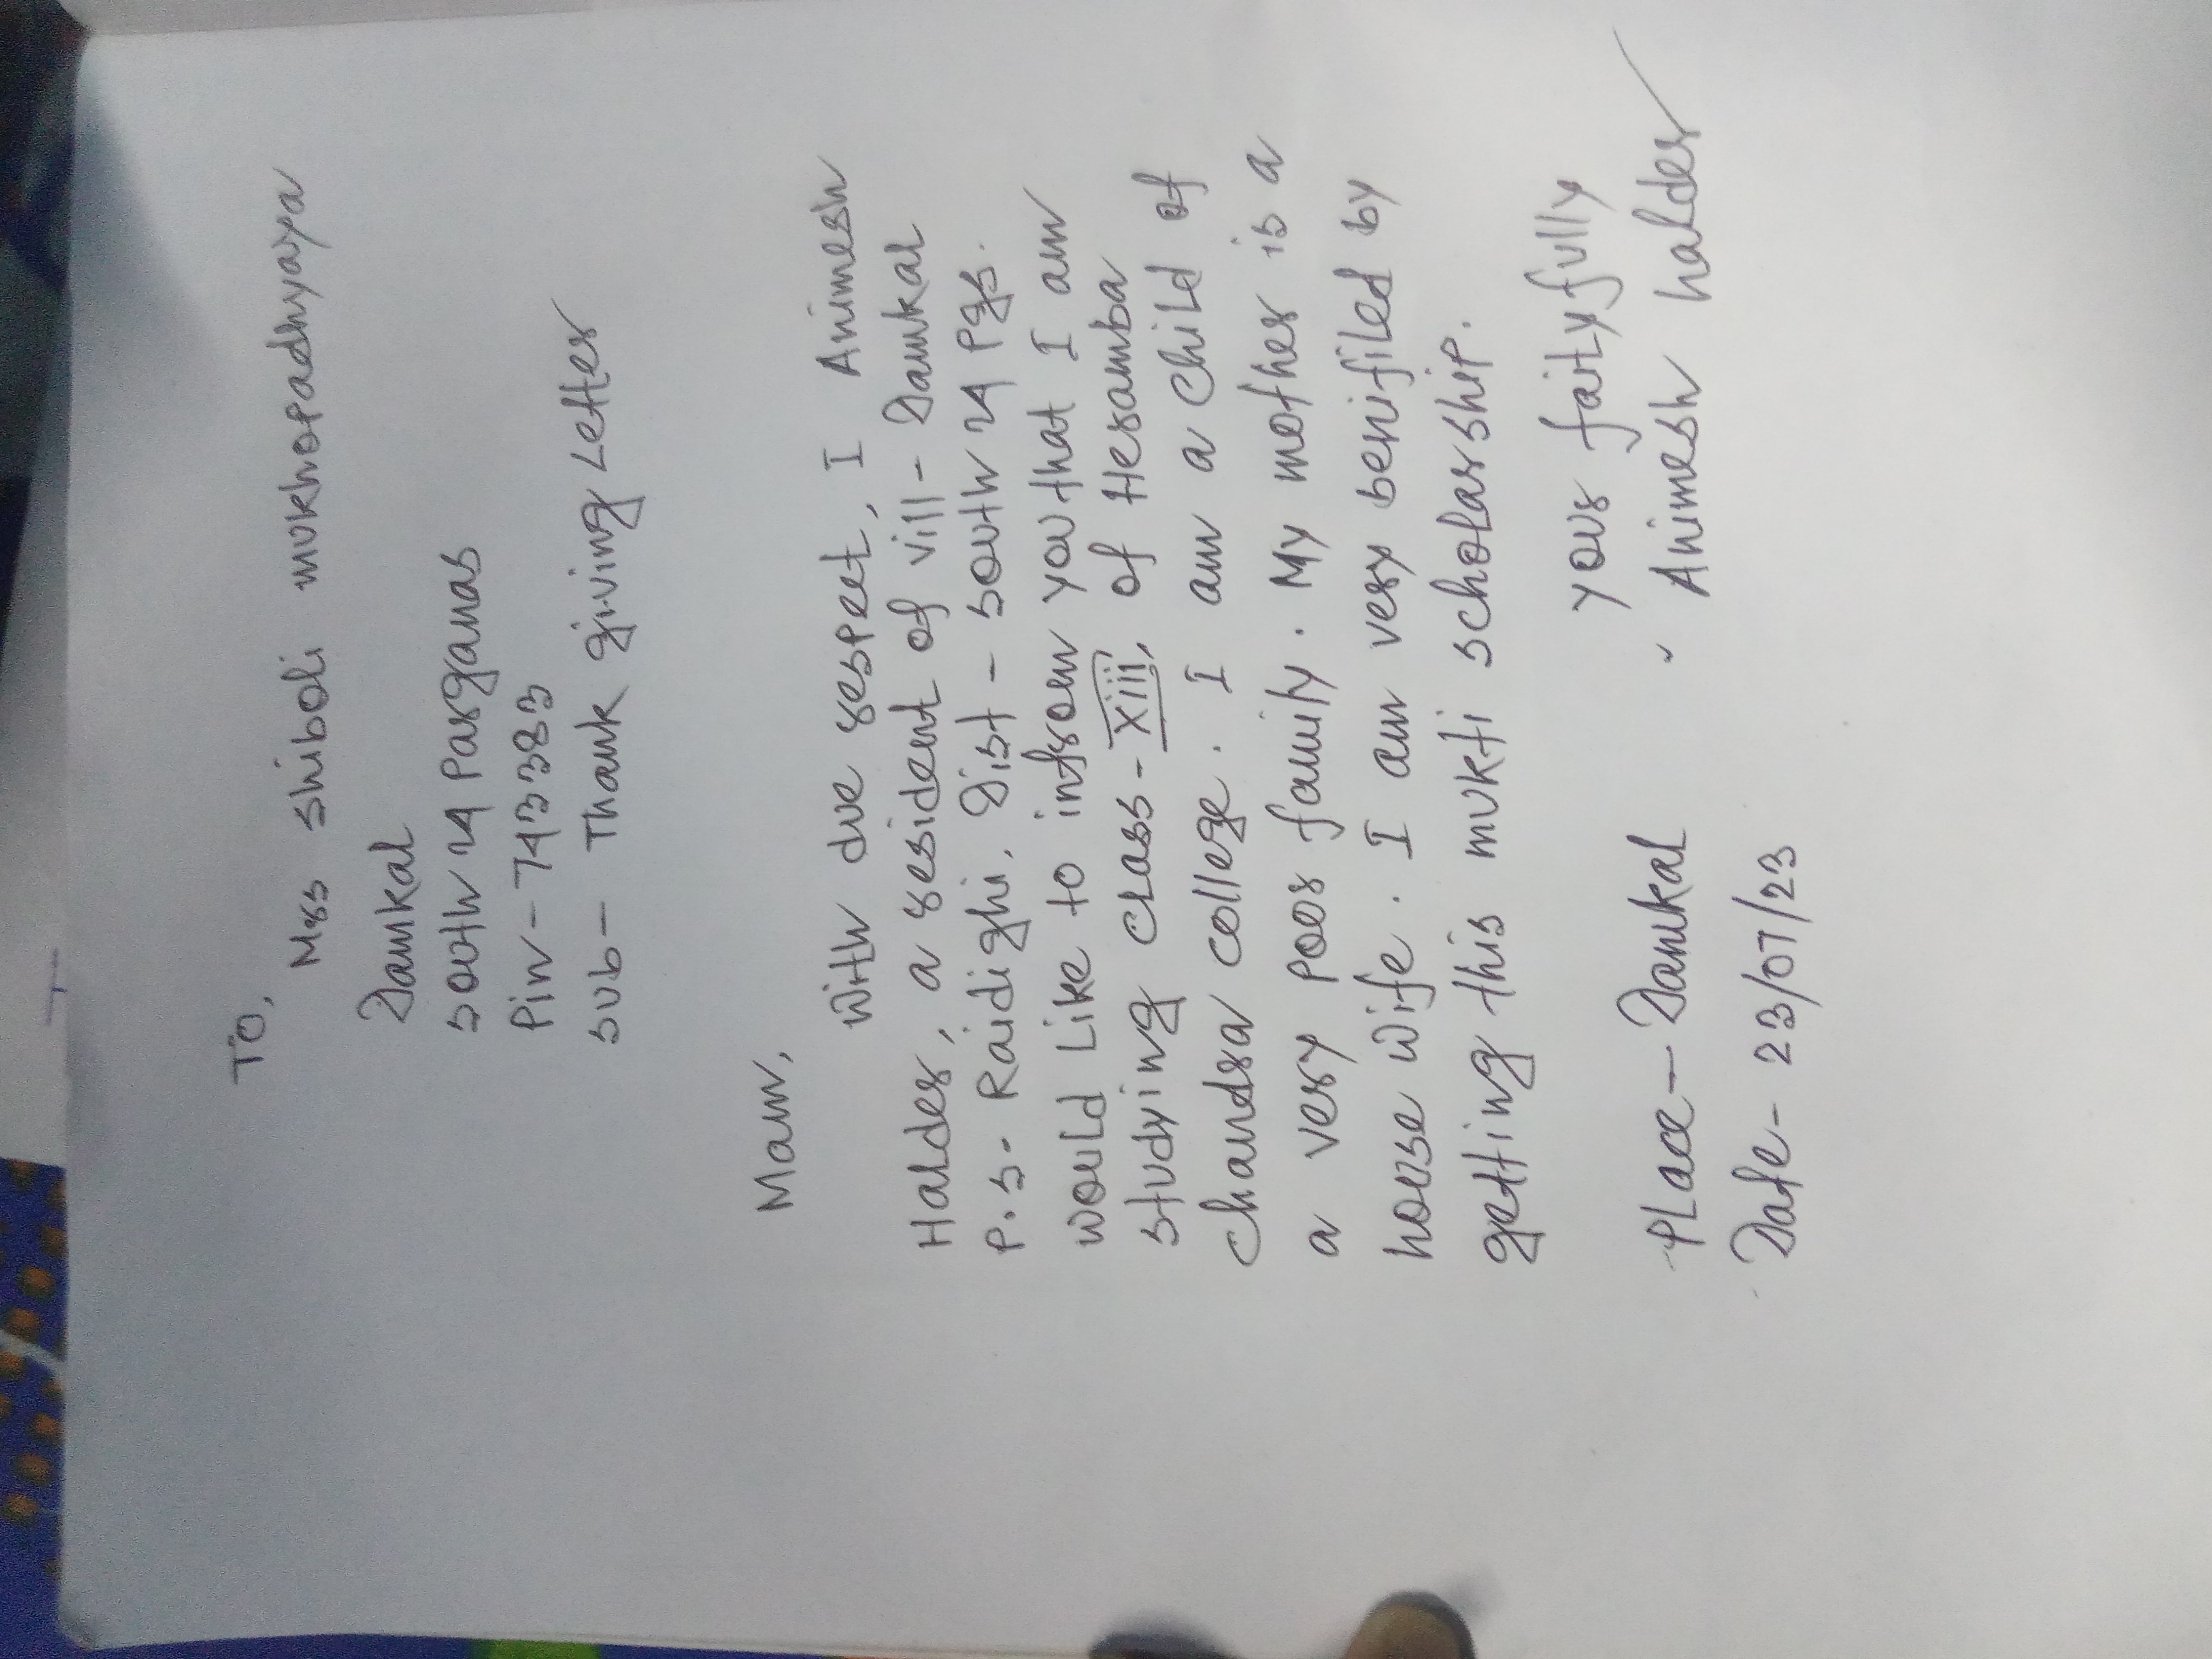 To,
Mrs Shiboli mukhopadhyaya
Damkal
South 24 Parganas
Pin - 743383
Sub - Thank giving Letter
Mam,
With due respet, I Animesh
Halder, a resident of vill - Damkal
P.S. Raidighi. Dist - South 24 Pgs.
would Like to infrom you that I am
studying Class - XIII, of Heramba
Chandra college. I am a Child of
a very poor family. My mother is a
house wife. I am very benifiled by
getting this mukti scholarship.
your faityfully
Animesh halder
Place - Damkal
Date - 23/07/23